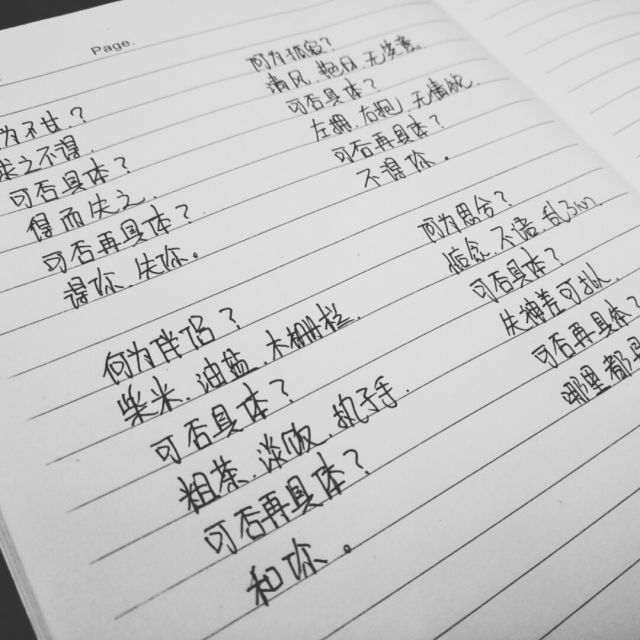 Page.
为不甘？
求之不得.
可否具体？
得而失之.
可否再具体？
得你.失你。
何为孤寂？
清风.艳日.无笑意.
可否具体？
左拥.右抱.无情欲.
可否再具体？
不得你。
何为伴侣？
柴米.油盐.木栅栏.
可否具体？
粗茶.淡饭.执子手.
可否再具体？
和你。
何为思念？
惦念.不语.乱了
可否具体？
失神
可否再具体？
哪里都